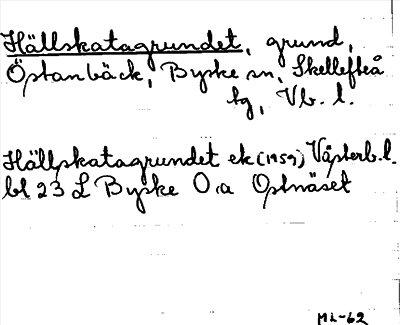 Hällskatagrundet, grund,
Östanbäck, Byske sn, Skellefteå
tg, Vb. l.
Hällskatagrundet ek (1959) Västerb.l.
bl 23 L Byske O.a Ostnäset
ML-62